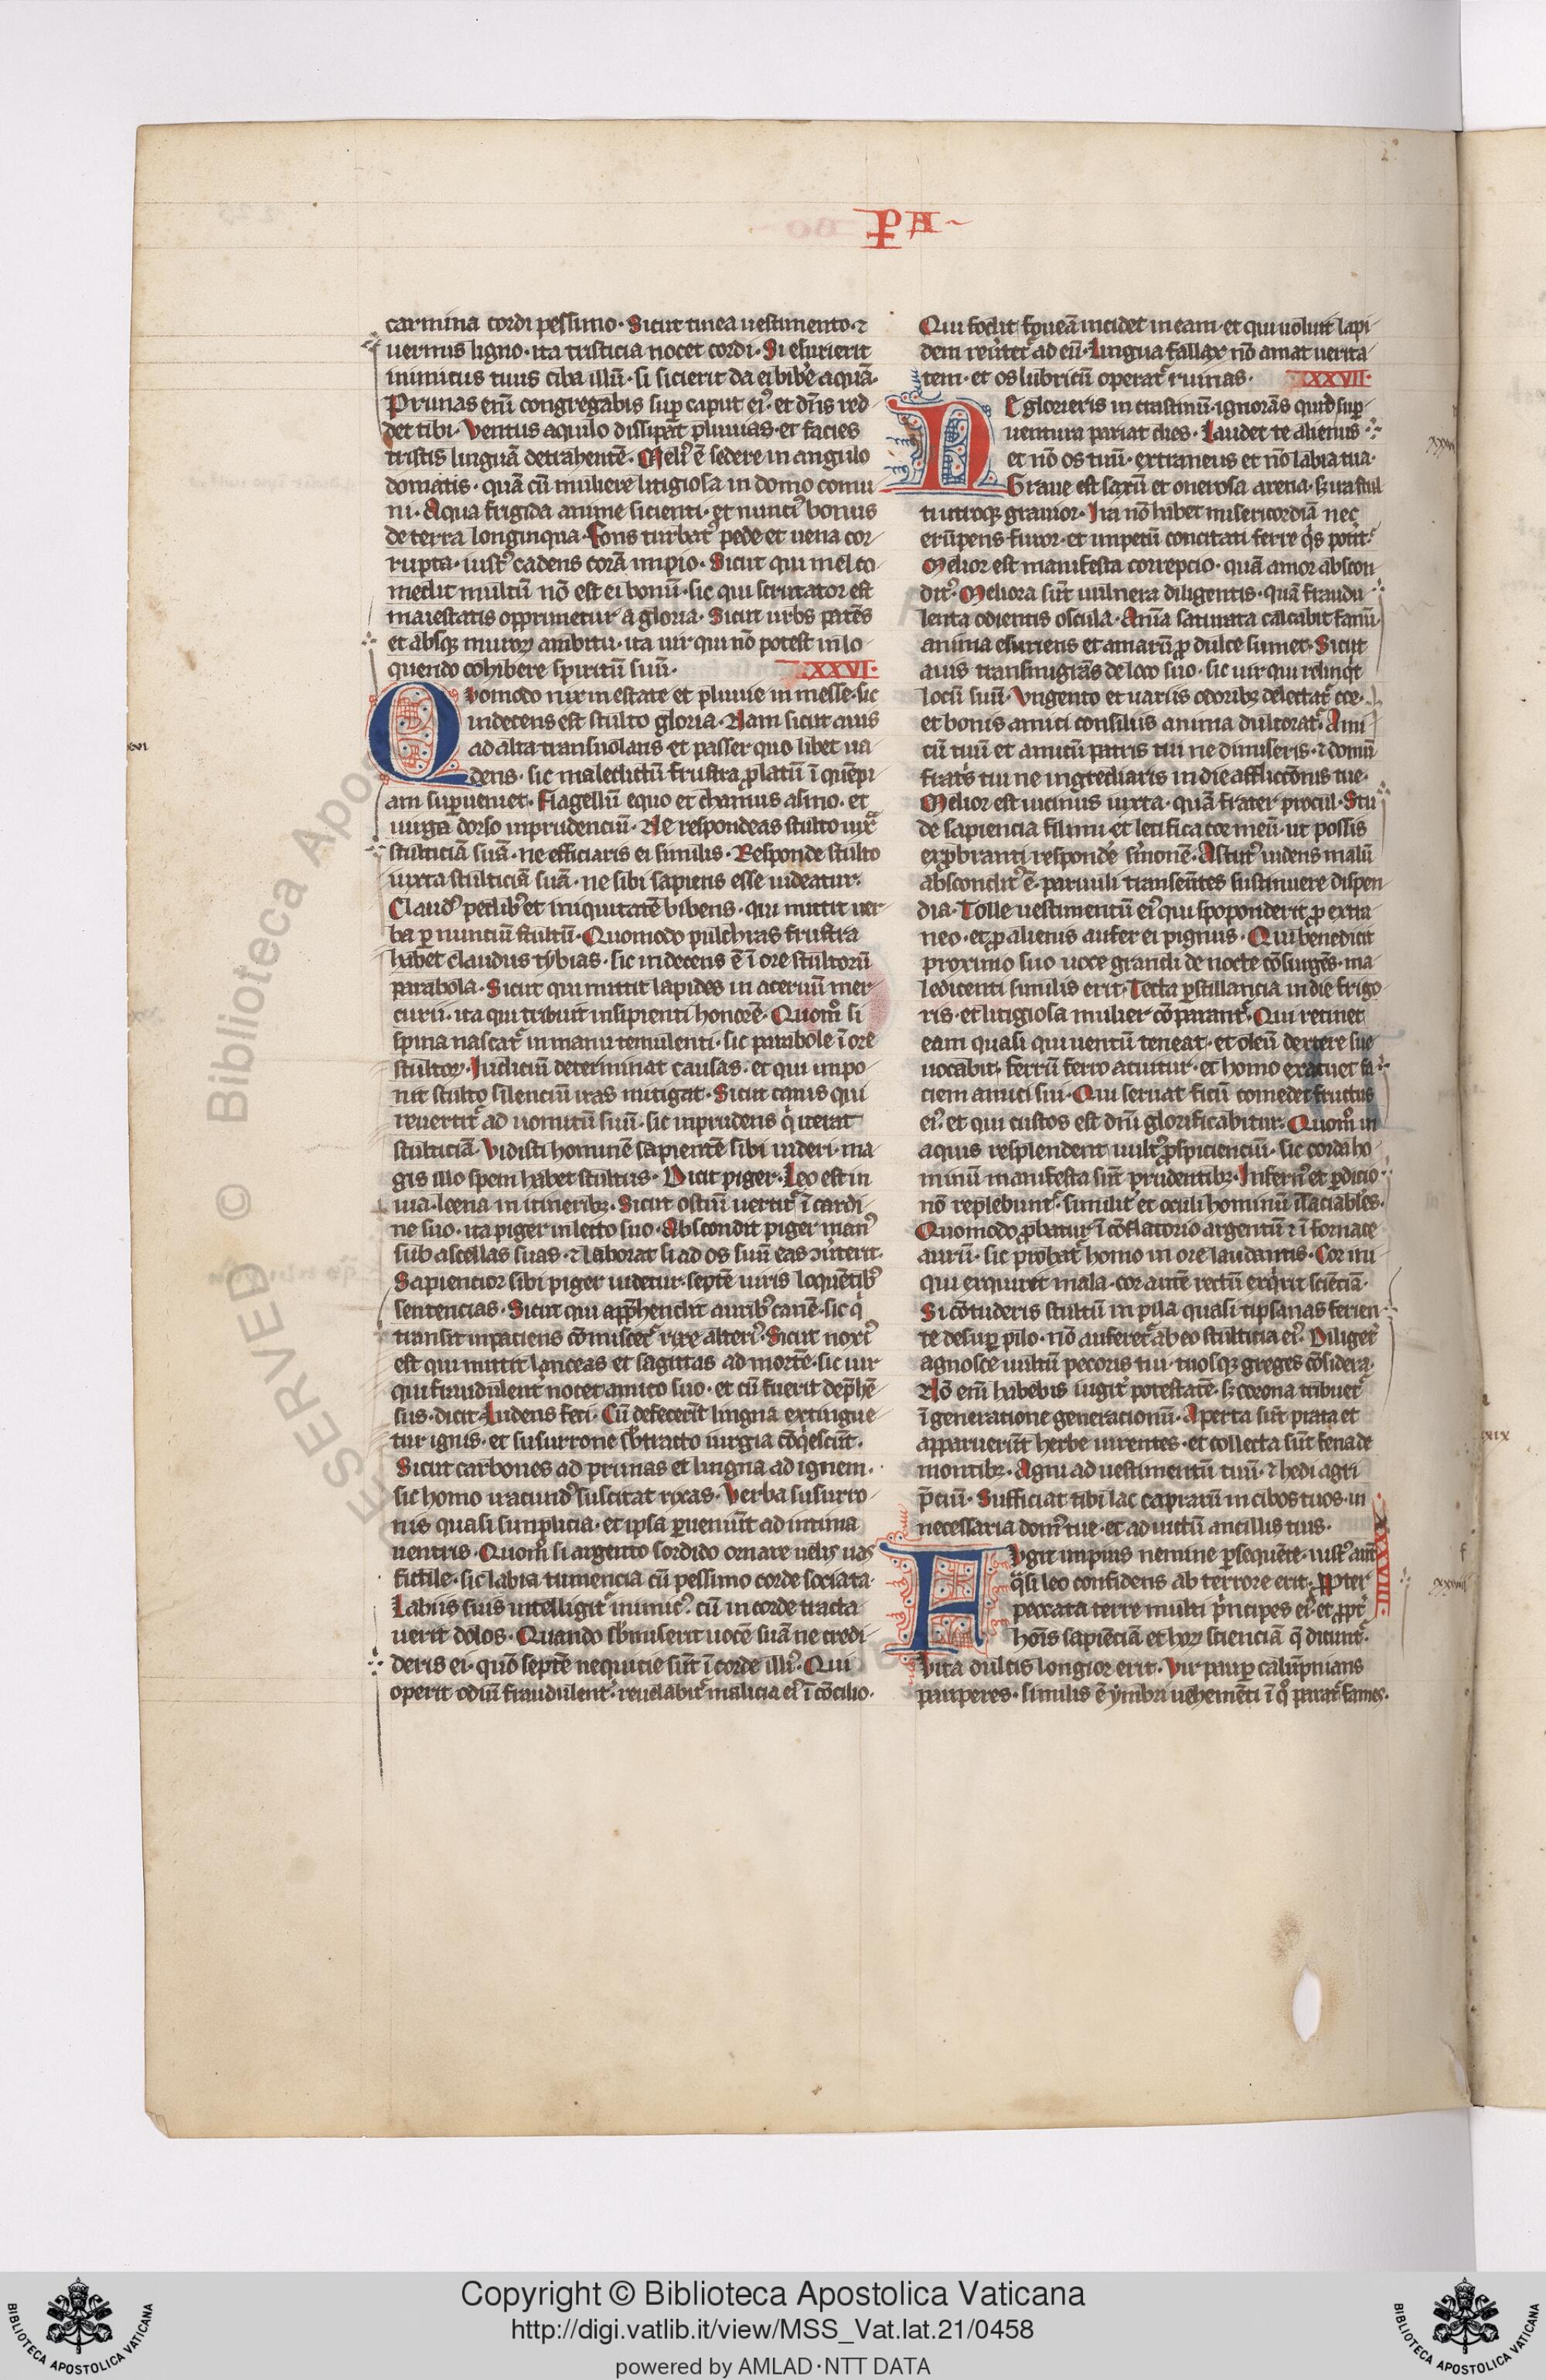 PA
carmina cordi pessimo· Sicut tinea uestimento·⁊
uermis ligno· ita tristicia nocet cordi· Si esurierit
inimicus tuus ciba illū· si sicierit da ei bibe aquā·
Prunas eni congregabis suꝑ caput eiꝰ· et dn̄s red
det tibi· Ventus aquilo dissipat pluuias· et facies
tristis linguā detrahentē· Meliꝰ ē sedere in angulo
domatis· quā cū muliere litigiosa in domo comu
ni· Aqua frigida anime sicienti· et nunciꝰ bonus
de terra longinqua· Fons turbatꝰ pede et uena cor
rupta· iustꝰ cadens corā impio· Sicut qui mel co
medit multū nō est ei bonū· sic qui scrutator est
maiestatis opprimetur a gloria· Sicut urbs patēs
et absqꝫ muroꝝ ambitu· ita uir qui nō potest in lo
quendo cohibere spiritū suū· XXVI·
Quomodo nix in estate et pluuie in messe· sic
indecens est stulto gloria· Nam sicut auis
ad alta transuolans et passer quo libet ua
dens· sic maledictū frustra ꝓlatū ī quēpi
am suꝑueniet· Flagellū equo et chamus asino· et
uirga dorso inprudenciū· Ne respondeas stulto iuxͣ
stulticiā suā· ne efficiaris ei similis· Responde stulto
iuxta stulticiā suā· ne sibi sapiens esse uideatur·
Claudꝰ pedibꝰ et iniquitatē bibens· qui mittit uer
ba ꝑ nunciū stultū· Quomodo pulchras frustra
habet claudus tybias· sic indecens ē ī ore stultorū
parabola· Sicut qui mittit lapides in aceruū mer
curii· ita qui tribuit insipienti honorē· Quom̊ si
spina nascat͛ in manu temulenti· sic parabole ī ore
stultoꝝ· Iudiciū determinat causas· et qui impo
nit stulto silenciū iras mitigat· Sicut canis qui
reuertit͛ ad uomitū suū· sic inprudens q̇ iterat
stulticiā· Vidisti hominē sapientē sibi uideri· ma
gis illo spem habet stultus· Dicit piger· Leo est in
uia· leena in itineribꝫ· Sicut ostiū uertit͛ ī cardi
ne suo· ita piger in lecto suo· Abscondit piger manꝰ
sub ascellas suas· ⁊ laborat si ad os suū eas ꝯuerterit·
Sapiencior sibi piger uidetur· septē uiris loquētibꝰ
sentencias· Sicut qui app̄hendit auribꝰ canē· sic q̇
transit inpaciens cōmiscet͛ rixe alteriꝰ· Sicut noxiꝰ
est qui mittit lanceas et sagittas ad mortē· sic uir
qui fraudulent͛ nocet amico suo· et cū fuerit dep̄hē
sus· dicit· Ludens feci· Cū defecerīt lingna extingue
tur ignis· et susurrone sb̾tracto iurgia cōq̇escūt·
Sicut carbones ad prunas et lingna ad ignem·
sic homo iracundꝰ suscitat rixas· Verba susurro
nis quasi simplicia· et ipsa ꝑueniūt ad intima
uentris· Quom̊ si argento sordido ornare uelis uas
fictile· sic labia tumencia cū pessimo corde sociata·
Labiis suis intelligit͛ inimicꝰ· cū in corde tracta
uerit dolos· Quando sb̾miserit uocē suā ne credi
deris ei· quō septē nequicie sūt ī corde illiꝰ· Qui
operit odiū fraudulent͛· reuelabit͛ malicia eiꝰ ī cōcilio·
Qui fodit foueā incidet in eam· et qui uoluit lapi
dem reuertet͛ ad eū· Lingua fallax nō amat uerita
tem· et os lubricū operat͛ ruinas· XXVII·
Ne glorieris in crastinū· ignorās quid suꝑ
uentura pariat dies· Laudet te alienus
et nō os tuū· extraneus et nō labia tua·
Graue est saxū et onerosa arena· sꝫ ira stul
ti utroqꝫ grauior· Ira nō habet misericordiā nec
erūpens furor· et impetū concitati ferre q̇s poterit·
Melior est manifesta correpcio· quā amor abscon
ditꝰ· Meliora sūt uulnera diligentis· quā fraudu
lenta odientis oscula· Anīa saturata calcabit fauū·
anima esuriens et amarū ꝓ dulce sumet· Sicut
auis transmigrās de loco suo· sic uir qui relinq̇t
locū suū· Vngento et uariis odoribꝫ delectat͛ cor·
et bonis amici consiliis anima dulcorat͛· Ami
cū tuū et amicū patris tui ne dimiseris· ⁊ domū
fratris tui ne ingrediaris in die afflicciōnis tue·
Melior est uicinus iuxta· quā frater procul· Stu
de sapiencia fili mi· et letifica cor meū· ut possis
exprobranti respondē sermonē· Astutꝰ uidens malū
absconditꝰ ē· paruuli transeūtes sustinuere dispen
dia· Tolle uestimentū eiꝰ qui spoponderit ꝓ extra
neo· et ꝓ alienis aufer ei pignus· Qui benedicit
proximo suo uoce grandi de nocte cōsurgēs· ma
ledicenti similis erit· Tecta ꝑstillancia in die frigo
ris· et litigiosa mulier cōparant͛· Qui retinet
eam quasi qui uentū teneat· et oleū dextere sue
uocabit· Ferrū ferro acuitur· et homo exacuet fa
ciem amici sui· Qui seruat ficū comedet fructus
eiꝰ· et qui custos est dnī glorificabitur· Quom̊ in
aquis resplendent uultꝰ ꝓspiciencium· sic corda ho
minū manifesta sūt prudentibꝫ· Infernꝰ et ꝑdicio
nō replebunt͛· similit͛ et oculi hominū īsaciabiles·
Quomodo ꝓbatur ī cōflatorio argentū ⁊ ī fornace
aurū· sic probat͛ homo in ore laudantis· Cor ini
qui exquiret mala· cor autē rectū exq̇rit sciēciā·
Si cōtuderis stultū in pila quasi tipsanas ferien
te desuꝑ pilo· nō auferet͛ ab eo stulticia eiꝰ· Diligent͛
agnosce uultū pecoris tui· tuosqꝫ greges cōsidera·
Nō eni habebis iugit͛ potestatē· sꝫ corona tribuet͛
ī generatione generacionū· Aperta sūt prata et
apparuerūt herbe uirentes· et collecta sūt fena de
montibꝫ· Agni ad uestimentū tuū· ⁊ hedi agri
p̄ciū· Sufficiat tibi lac caprarū in cibos tuos· in
necessaria domꝰ tue· et ad uictū ancillis tuis·
XXVIII·
Fugit impius nemine ꝑsequēte· iustꝰ aūt
q̄si leo confidens ab terrore erit· Ꝓpter
peccata terre multi prīncipes eiꝰ· et ꝓpt͛
hoīs sapiēciā et hoꝝ scienciā q̄ dicunt͛·
Vita ducis longior erit· Vir pauꝑ calūpnians
pauperes· similis ē ymbri uehemēti ī q̊ parat͛ fames·
Copyright © Biblioteca Apostolica Vaticana
http://digi.vatlib.it/view/MSS_Vat.lat.21/0458
powered by AMLAD·NTT DATA
BIBLIOTECA APOSTOLICA VATICANA
BIBLIOTECA APOSTOLICA VATICANA